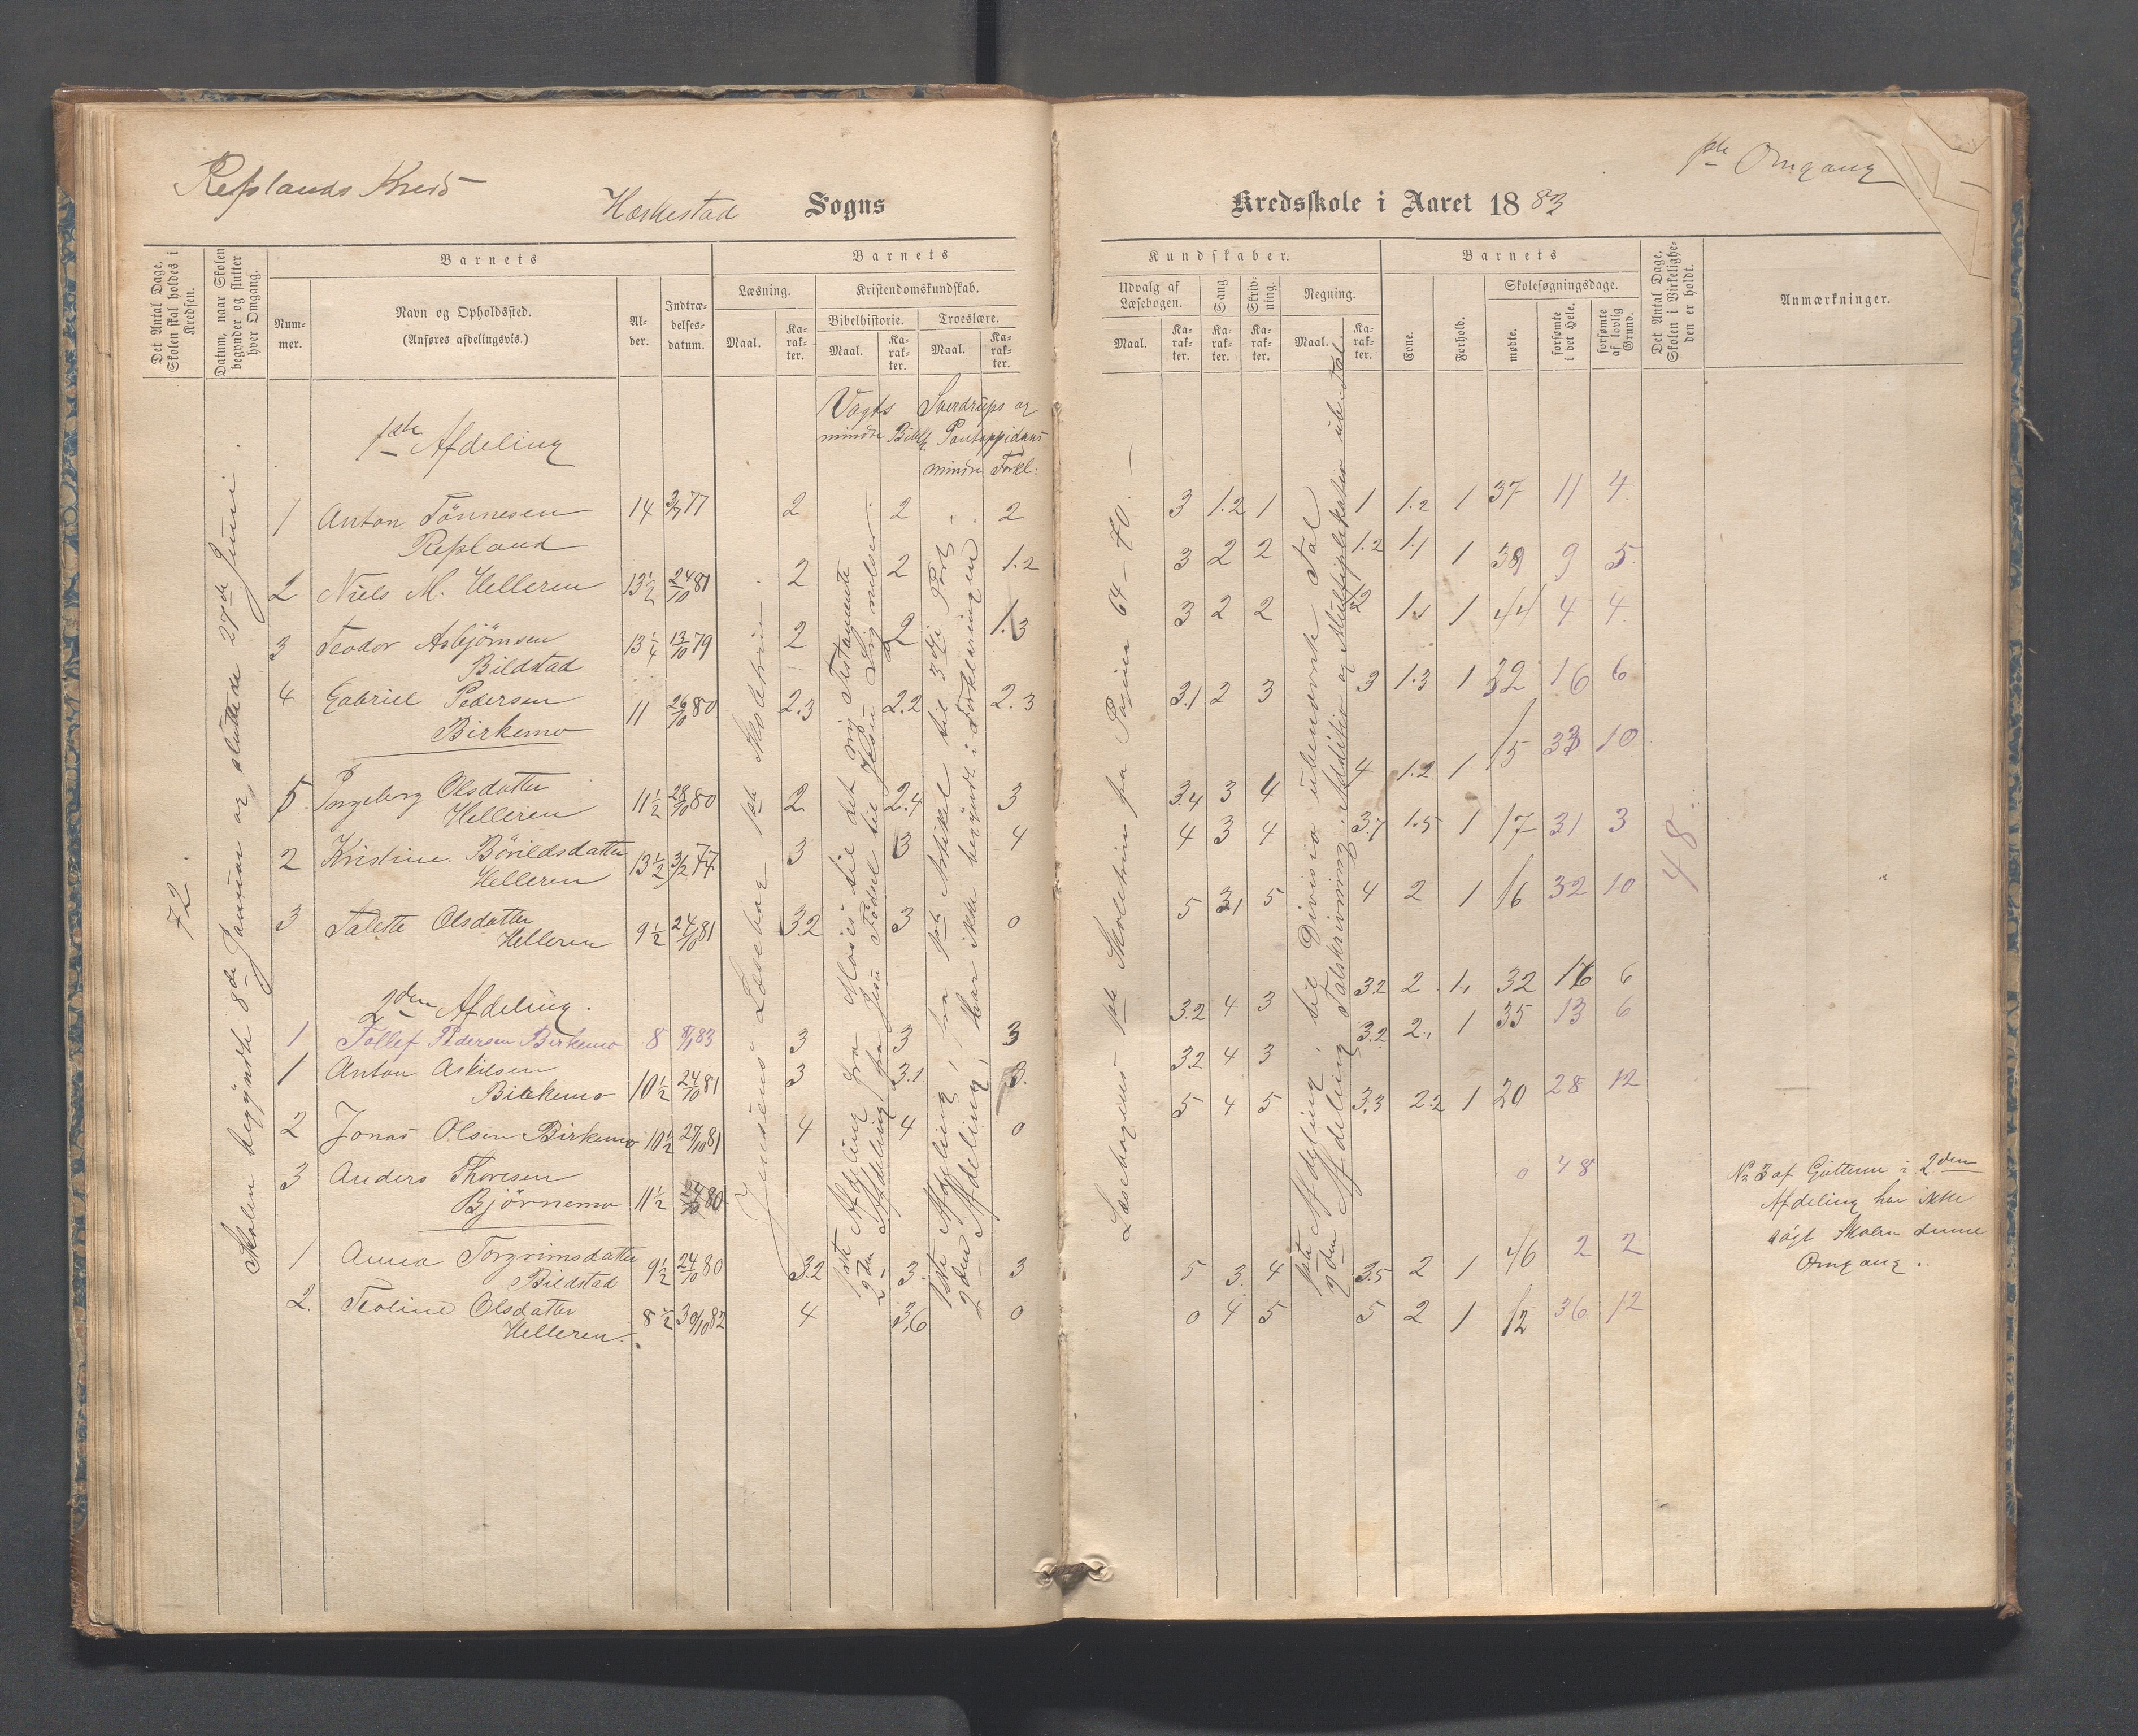 Refslands Kreds
Heskestad Sogns
Kredsskole i Aaret 1883
1ste Omgang
Det Antal Dage, Skolen skal holdes i Kredsen.
Datum, naar Skolen begynder og slutter hver Omgang.
Barnets
Nummer.
Navn og Opholdssted.
(Anføres afdelingsvis.)
Alder.
Indtrædelsesdatum.
Barnets
Læsning.
Maal.
Karakter.
Kristendomskundskab.
Bibelhistorie.
Maal.
Karakter.
Troeslære.
Maal.
Karakter.
Kundskaber.
Udvalg af Læsebogen.
Maal.
Karakter.
Sang
Karakter.
Skrivning.
Karakter.
Regning.
Maal.
Karakter.
Barnets
Evne.
Forhold.
Skolesøgningsdage.
mødte.
forsømte i det Hele.
forsømte af lovlig Grund.
Det Antal Dage, Skolen i Virkeligheden er holdt.
Anmærkninger.
72.
Skolen begyndte 8de Januar og sluttede 27de Juni.
Vogts mindre Bibelh.
Sverdrups og Pontoppidans mindre Forkl:
1ste Afdeling
1 Anton Tönnesen 14 3/7 77 2 2 2 3 1.2 1 1 1.2 1 37 11 4
Refsland
2 Niels M. Helleren 13½ 24/10 81 2 2 1.2 3 2 2 1.2 1.1 1 39 9 5
3 Teodor Asbjörnsen 13¼ 13/10 79 2 2 1.3 3 2 2 2 1.1 1 44 4 4
Bildstad
4 Gabriel Pedersen 11 26/10 80 2.3 2.2 2.3 3.1 2 3 3 1.3 1 32 16 6
Birkemo
5. Ingeborg Olsdatter 11½ 28/10 80 2 2.4 3 3.4 3 4 4 1.2 1 15 33 10
Helleren
2 Kristine Börildsdatter 13½ 3/2 77 3 3 4 4 3 4 3.7 1.5 1 17 31 3
Helleren
3 Talette Olsdatter 9½ 24/10 81 3.2 3 0 5 3.1 5 4 2 1 16 32 10
Helleren
2den Afdeling.
1 Tollef Pedersen Birkemo 8 8/1 83 3 3 3 3.2 4 3 3.2 2 1.1 32 16 6
1 Anton Askilsen 10½ 24/10 81 3 3.1 3. 3.2 4 3 3.2 2.1 1 35 13 6
Birkemo
2 Jonas Olsen Birkemo 10½ 27/10 81 4 4 0 5 4 5 3.3 2.2 1 20 28 12
3 Anders Thoresen 11½ 80 0 48
Björnemo
1 Anna Torgrimsdatter 9½ 24/10 80 3.2 3. 3 5 3. 4 3.5 2 1 46 2 2
Bildstad
2. Teoline Olsdatter 8½ 30/10 82 4 3.6 0 0 4 5 5 2 1 12 36 12
Helleren.
Jensens Læsebog 1ste Skoletrin
1ste Afdeling fra Moses til det ny Testamente
2den Afdeling fra Jesu Födsel til Jesu Lignelser.
1ste Afdeling, fra 1ste Artikel til 3die Part
2den Afdeling, har ikke begyndt i Forklaringen
Læsebogens 1ste Skoletrin fra Pagina 64 – 70. –
1ste Afdeling, til Division ubenævnte Tal
2den Afdeling Talskrivning, Addition og Multiplikation uben. Tal
48
No 3 af Gutterne i 2den
Afdeling har ikke
sögt Skolen denne
Omgang.